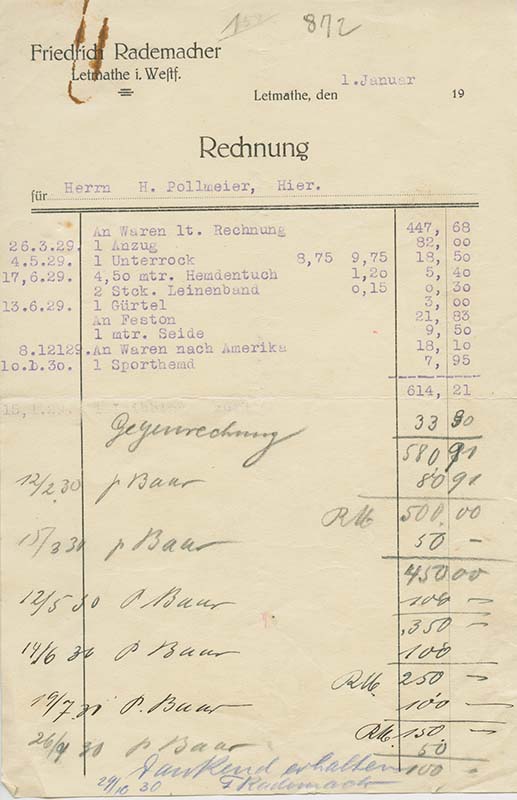 872
Friedrich Rademacher
Letmathe i. Westf.
Letmathe, den 1.Januar 19
Rechnung
für Herrn H. Pollmeier, Hier.
An Waren lt. Rechnung 447, 68
26.3.29. 1 Anzug 82, 00
4.5.29. 1 Unterrock 8,75 9,75 18, 50
17,6.29. 4,50 mtr. Hemdentuch 1,20 5, 40
2 Stck. Leinenband 0,15 0, 30
13.6.29. 1 Gürtel 3, 00
An Feston 21, 83
1 mtr. Seide 9, 50
8.12129. An Waren nach Amerika 18, 10
10.1.30. 1 Sporthemd 7, 95
614, 21
Gegenrechnung 33 30
580 91
12/2.30 p Baar 80 91
RM. 500.00
15/3 30 p Baar 50 -
450 00
12/5 30 P. Baar 100 -
350 -
14/6 30 P. Baar 100
RM. 250 -
19/7 30 P. Baar 100 -
RM. 150. -
26/9 30 p Baar 50
100 -
Dankend erhalten
29/10 30 F Rademacher